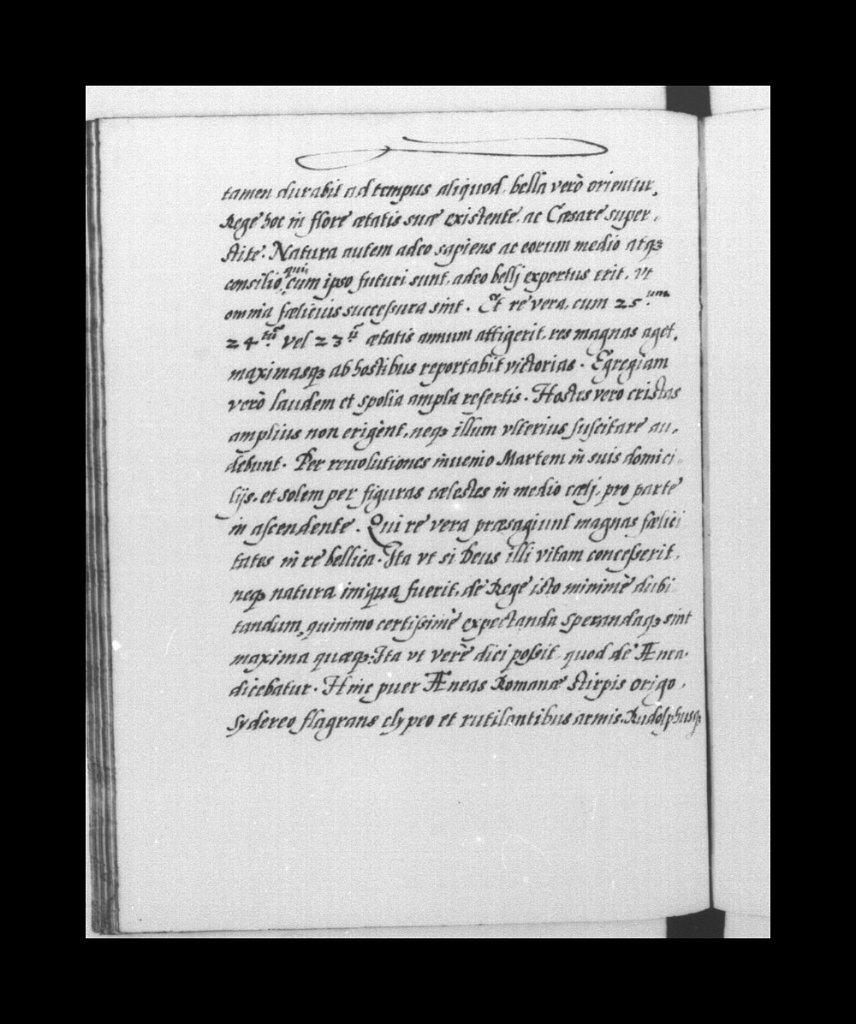 tamen durabit ad tempus aliquod, bella verò orientur,
Rege hoc in flore ætatis suæ existente, ac Cæsare super,
stite. Natura autem adeo sapiens ac eorum medio atqꝫ
consilio, qui cum ipso futuri sunt, adeo bellj expertus erit, vt
omnia fæliciùs successura sint. Et re vera, cum 25.um
24.tũ vel 23.ũ ætatis annum attigerit, res magnas aget,
maximasqꝫ ab hostibus reportabit victorias. Egregiam
verò laudem et spolia ampla refertis. Hostes vero cristas
amplius non erigent, neqꝫ illum vlterius suscitare au,
debunt. Per reuolutiones inuenio Martem in suis domici,
lijs, et solem per figuras cælestes in medio cælj, pro parte
in ascendente. Qui re vera præsagiunt magnas fælici
tates in re bellica. Ita vt si Deus illi vitam concesserit,
neqꝫ natura iniqua fuerit, de Rege isto minimè dubi
tandum, quinimo certissimè expectanda sperandaqꝫ sint
maxima quæqꝫ. Ita vt verè dici possit, quod de Ænea
dicebatur. Hinc puer Æneas Romanæ stirpis origo,
Sydereo flagrans clypeo et rutilantibus armis. Rudolphusqꝫ